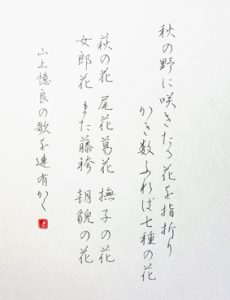 秋の野に咲きたる花を指折り
かき数ふれば七種の花
萩の花 尾花葛花 撫子の花
女郎花 また藤袴 朝貌の花
山上憶良の歌を 連有かく